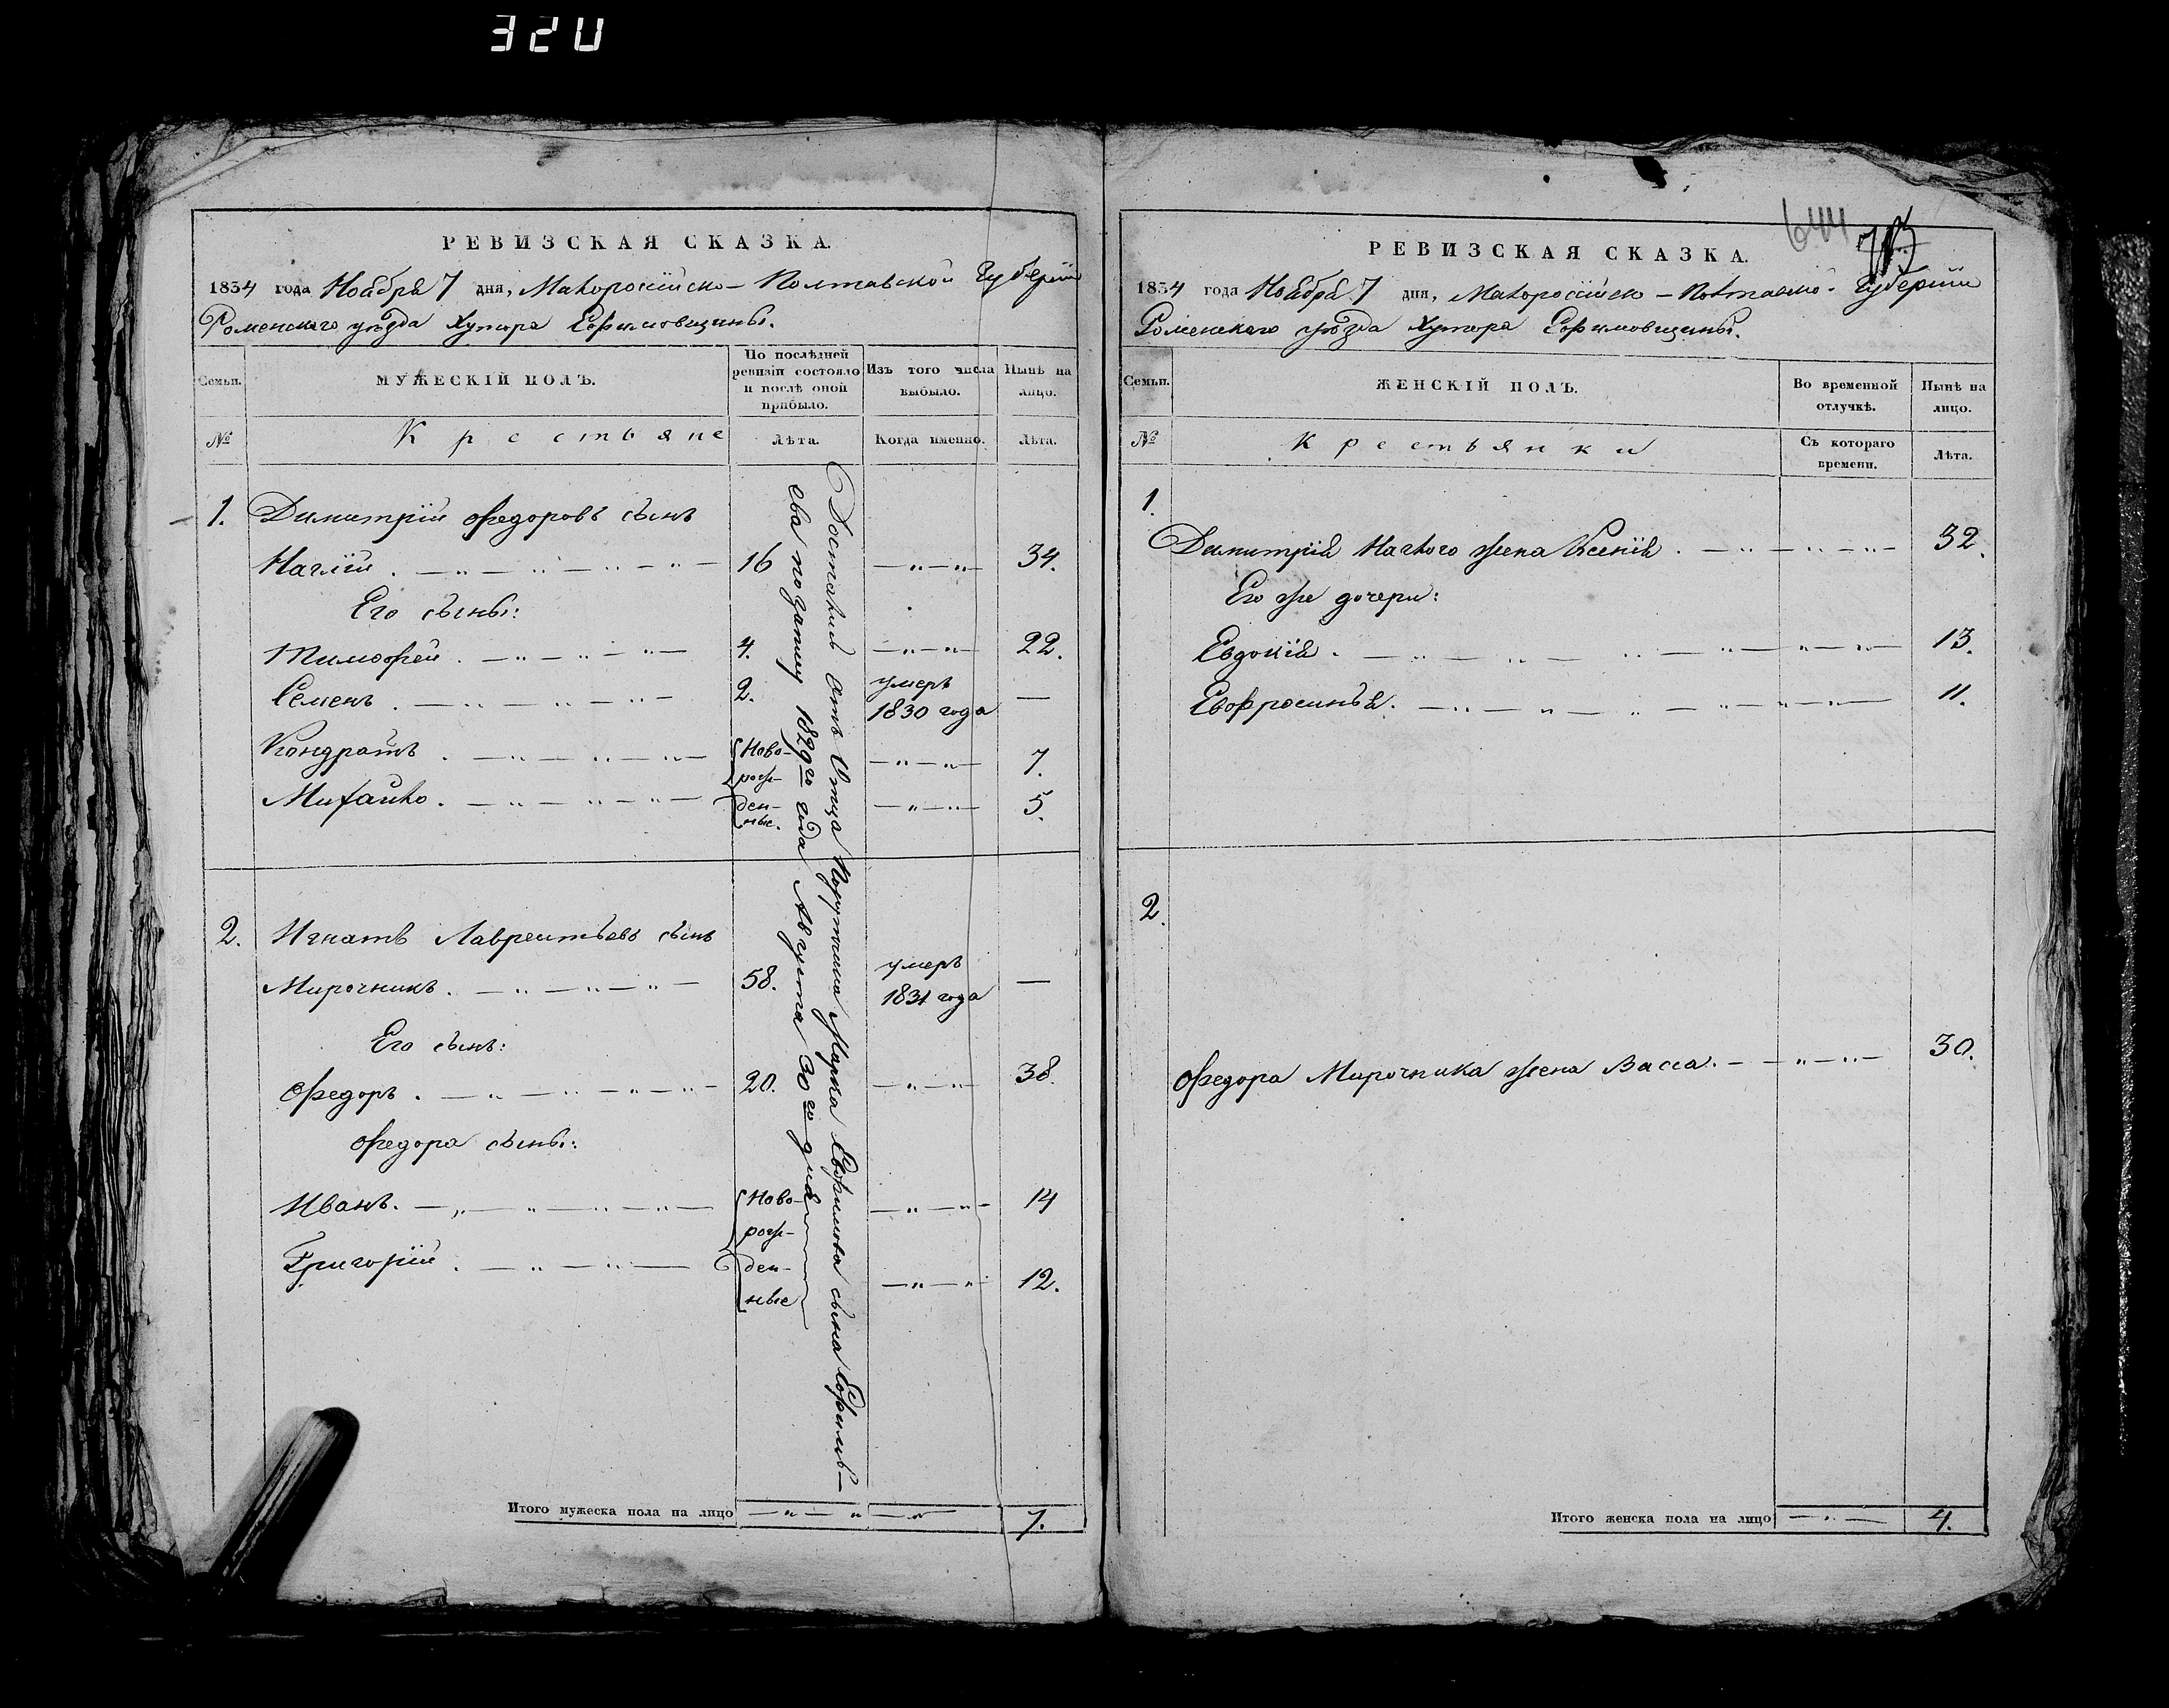 320
РЕВИЗСКАЯ СКАЗКА.
1834 года Ноября 7 дня, Малороссійско-Полтавской Губерніи
Роменскаго уѣзда Хутора Ефимовщины.
Семьи.
МУЖЕСКІЙ ПОЛЪ.
По послѣдней ревизіи состояло и послѣ оной прибыло.
Изъ того числа выбыло.
Нынѣ на лицо.
№
Крестьяне
Лѣта.
Когда именно.
Лѣта.
1. Димитрій Федоровъ сынъ
16 —"—"— 34.
Его сыны:
Тимофей . —"—"—"— 4. —"—"— 22.
Семенъ . —"—"—"— 2. умеръ 1830 года —
Кондратъ . —"—"—"— Ново- —"—"— 7.
рож-
Михайло . —"—"—"— ден- —"—"— 5.
ные.
2. Игнатъ Лаврентьевъ сынъ
Мирочникъ . —"—"—"— 58. умеръ 1831 года —
Его сынъ:
Федоръ . —"—"—"— 20. —"—"— 38.
Федора сыны:
Иванъ. —"—"—"— Ново- —"—"— 14
рож-
Григорій . —"—"— ден- —"—"— 12.
ные
Достались отъ Отца Порутчика Марка Ефимова сына Ефимь-
ева по запису 1829го года Августа 30го дня
Итого мужеска пола на лицо —"—"—"— 7.
644
РЕВИЗСКАЯ СКАЗКА.
1834 года Ноября 7 дня, Малороссійско-Полтавской Губерніи
Роменскаго уѣзда Хутора Ефимовщины.
Семьи.
ЖЕНСКІЙ ПОЛЪ.
Во временной отлучкѣ.
Нынѣ на лицо.
№
Крестьянки
Съ котораго времени.
Лѣта.
1.
Димитрія жена Ксенія . —"—"—"— 32.
Его же дочери:
Евдокія . —"—"—"— 13.
Евфросинья. —"—"—"— 11.
2.
Федора Мирочника жена Васса. —"—"— 30.
Итого женска пола на лицо —"— 4.